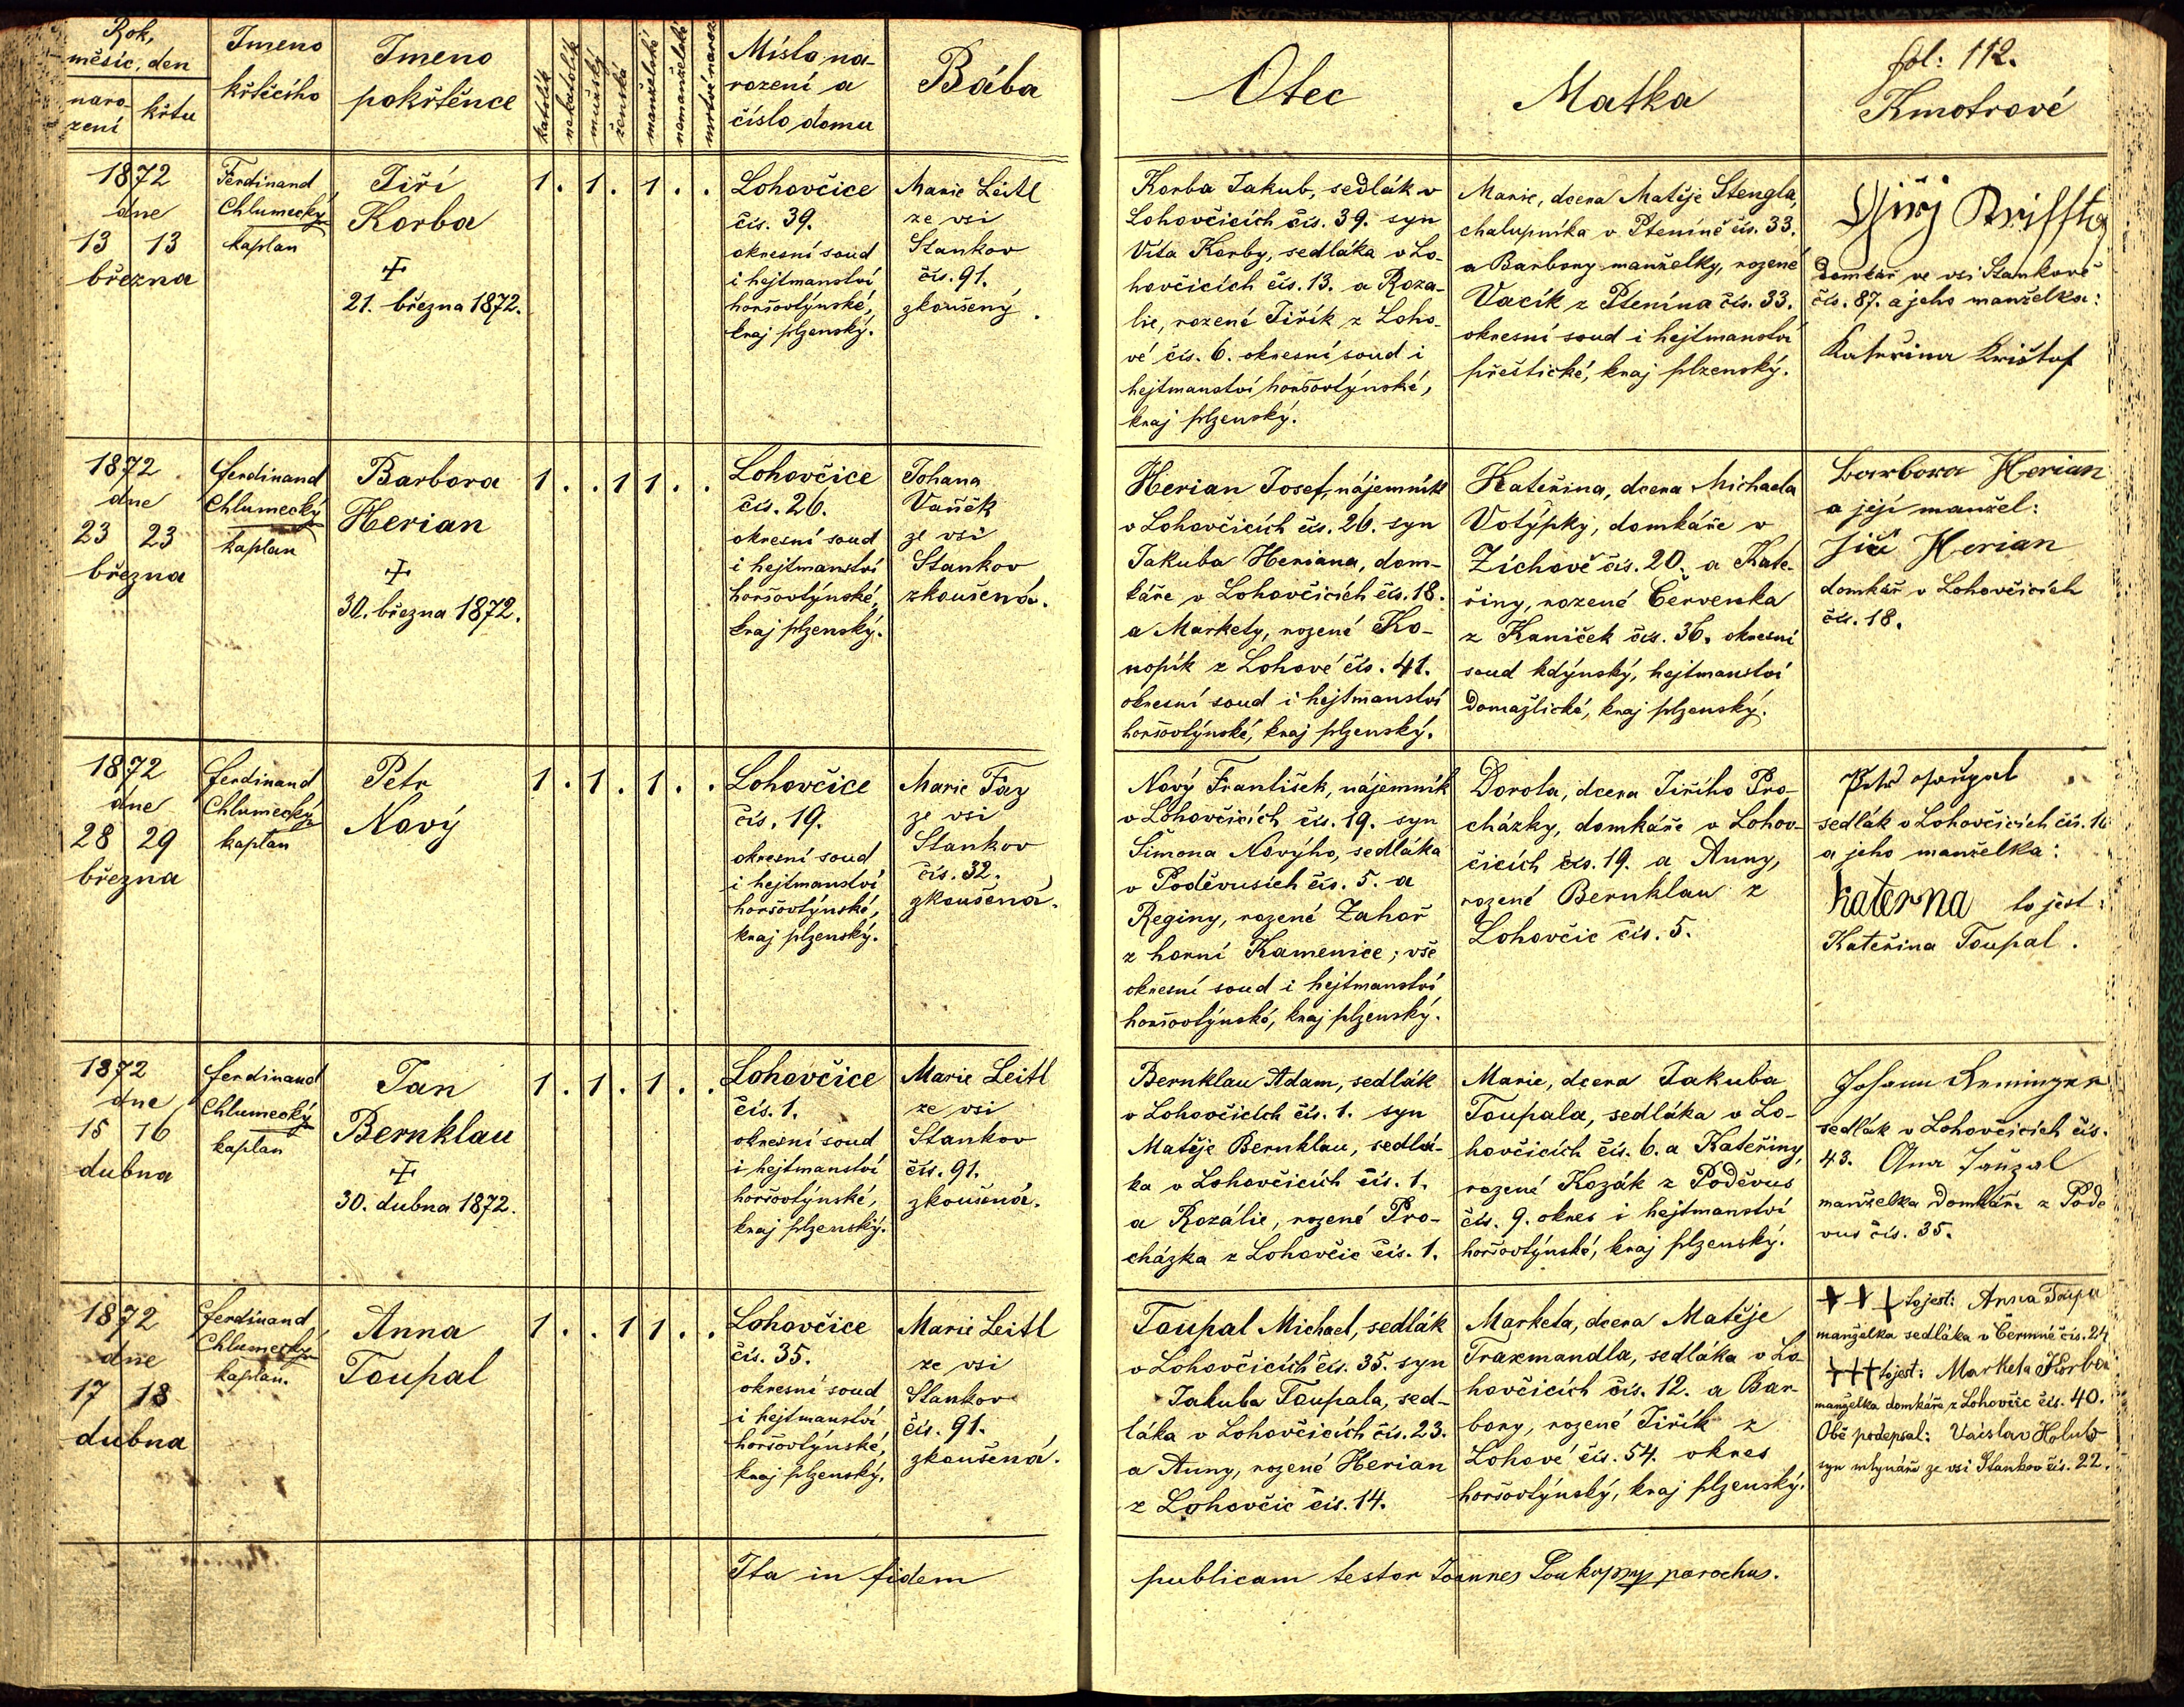 Rok,
měsíc, den
naro-
zení
křtu
Jmeno
křtěcího
Jmeno
pokřtěnce
katolík
nekatolík
mužský
ženská
manželské
nemanželské
mrtvě naroz.
Místo na-
rození a
číslo domu
Bába
Otec
Matka
fol: 112.
Kmotrové
1872
dne
13 13
března
Ferdinand
Chlumecký
kaplan
Jiří
Korba
21. března 1872.
1 . 1 . 1 . .
Lohovčice
čís. 39.
okresní soud
i hejtmanství
horšovtýnské,
kraj plzenský.
Marie Leitl
ze vsi
Stankov
čís. 91.
zkoušený.
Korba Jakub, sedlák v
Lohovčicích čís. 39. syn
Víta Korby, sedláka v Lo-
hovčicích čís. 13. a Roza-
lie, rozené Jiřík z Loho-
vé čís. 6. okresní soud i
hejtmanství horšovtýnské,
kraj plzenský.
Marie, dcera Matěje Stengla,
chalupníka v Pteníně čís. 33.
a Barbory manželky, rozené
Vacík z Ptenína čís. 33.
okresní soud i hejtmanství
přeštické, kraj plzenský.
domkář ve vsi Stankově
čís. 87. a jeho manželka:
Kateřina Krištof
1872
dne
23 23
března
Ferdinand
Chlumecký
kaplan
Barbora
Herian
30. března 1872.
1 . . 1 1 . .
Lohovčice
čís. 26.
okresní soud
i hejtmanství
horšovtýnské,
kraj plzenský.
Johana
Vaňěk
ze vsi
Stankov
zkoušená.
Herian Josef, nájemník
v Lohovčicích čís. 26. syn
Jakuba Heriana, dom-
káře v Lohovčicích čís. 18.
a Markety, rozené Ko-
nopík z Lohové čís. 41.
okresní soud i hejtmanství
horšovtýnské, kraj plzenský.
Kateřina, dcera Michaela
Votýpky, domkáře v
Zíchově čís. 20. a Kate-
řiny, rozené Červenka
z Kaniček čís. 36. okresní
soud kdýnský, hejtmanství
Domažlické, kraj plzenský.
Barbora Herian
a její manžel:
Jiří Herian
domkář v Lohovčicích
čís. 18.
1872
dne
28 29
března
Ferdinand
Chlumecký
kaplan
Petr
Nový
1 . 1 . 1 . .
Lohovčice
čís. 19.
okresní soud
i hejtmanství
horšovtýnské,
kraj plzenský.
Marie Faz
ze vsi
Stankov
čís. 32.
zkoušená.
Nový František, nájemník
v Lohovčicích čís. 19. syn
Šimona Nového, sedláka
v Poděvusích čís. 5. a
Reginy, rozené Zahoř
z horní Kamenice; vše
okresní soud i hejtmanství
horšovtýnské, kraj plzenský.
Dorota, dcera Jiřího Pro-
cházky, domkáře v Lohov-
čicích čís. 19. a Anny,
rozené Bernklau z
Lohovčic čís. 5.
Petr Toupal
sedlák v Lohovčicích čís. 16
a jeho manželka:
katerna to jest:
Kateřina Toupal.
1872
dne
15 16
dubna
Ferdinand
Chlumecký
kaplan
Jan
Bernklau
30. dubna 1872.
1 . 1 . 1 . .
Lohovčice
čís. 1.
okresní soud
i hejtmanství
horšovtýnské,
kraj plzenský.
Marie Leitl
ze vsi
Stankov
čís. 91.
zkoušená.
Bernklau Adam, sedlák
v Lohovčicích čís. 1. syn
Matěje Bernklau, sedlá-
ka v Lohovčicích čís. 1.
a Rozálie, rozené Pro-
cházka z Lohovčic čís. 1.
Marie, dcera Jakuba
Toupala, sedláka v Lo-
hovčicích čís. 6. a Kateřiny,
rozené Kozák z Poděvus
čís. 9. okres i hejtmanství
horšovtýnské, kraj plzenský.
Johann
sedlák v Lohovčicích čís.
43. Ana
manželka domkáře z Pode
vus čís. 35.
1872
dne
17 18
dubna
Ferdinand
Chlumecký
kaplan.
Anna
Toupal
1 . . 1 1 . .
Lohovčice
čís. 35.
okresní soud
i hejtmanství
horšovtýnské,
kraj plzenský.
Marie Leitl
ze vsi
Stankov
čís. 91.
zkoušená.
Toupal Michael, sedlák
v Lohovčicích čís. 35. syn
Jakuba Toupala, sed-
láka v Lohovčicích čís. 23.
a Anny, rozené Herian
z Lohovčic čís. 14.
Marketa, dcera Matěje
Traxmandla, sedláka v Lo-
hovčicích čís. 12. a Bar-
bory, rozené Jiřík z
Lohové čís. 54. okres
horšovtýnský, kraj plzenský.
+ + + to jest: Anna Toupa
manželka sedláka v Čermné čís. 24
+++ to jest: Marketa Korba
manželka domkáře z Lohovčic čís. 40.
Obě podepsal: Václav Holub
syn mlynáře ze vsi Stankov čís. 22.
Ita in fidem
publicam testor Joannes Soukopp parochus.